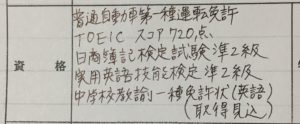 普通自動車第一種運転免許
TOEIC スコア720点
日商簿記検定試験準2級
実用英語技能検定準2級
中学校教諭一種免許状(英語)
(取得見込)
資格